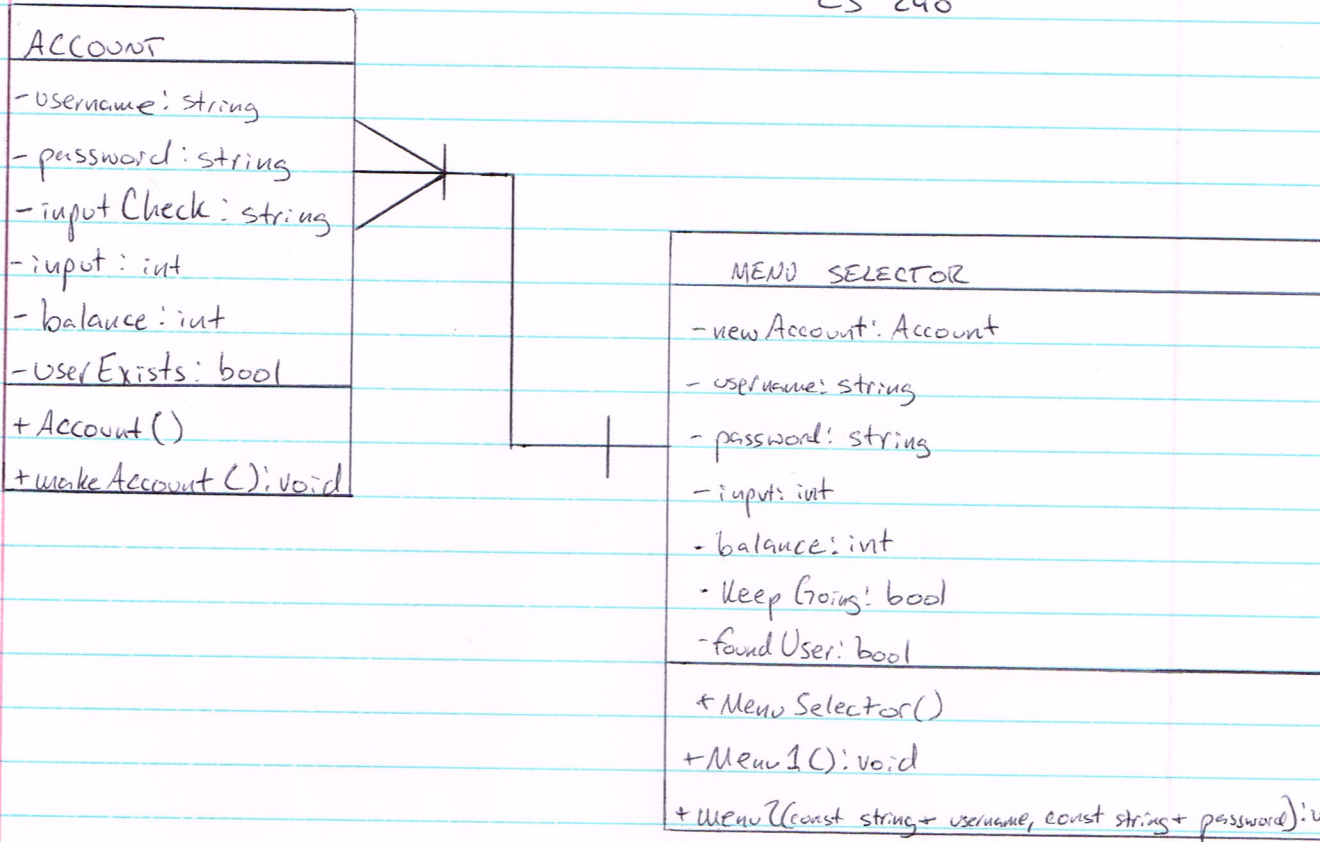 CS 240
ACCOUNT
- username: string
- password: string
- inputCheck: string
- input: int
- balance: int
- userExists: bool
+ Account()
+ makeAccount(): void
MENU SELECTOR
- newAccount: Account
- username: string
- password: string
- input: int
- balance: int
- KeepGoing: bool
- foundUser: bool
+ MenuSelector()
+ Menu1(): void
+ menu2(const string+ username, const string+ password):